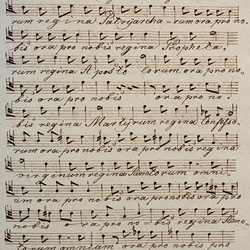 rum regina Patrijarcha-rum ora pro no-
bis ora pro nobis regina Propheta-
rum regina Aposto lorum ora pro no-
bis ora pro nobis ora pro no-
bis regina Martijrum regina Confesso-
rum ora pro nobis ora pro nobis regina
virginum regina Sanctorum omni-
um ora pro nobis ora pro nobis ora pro
nobis ora pro nobis regina Sanc-
torum omnium ora pro nobis